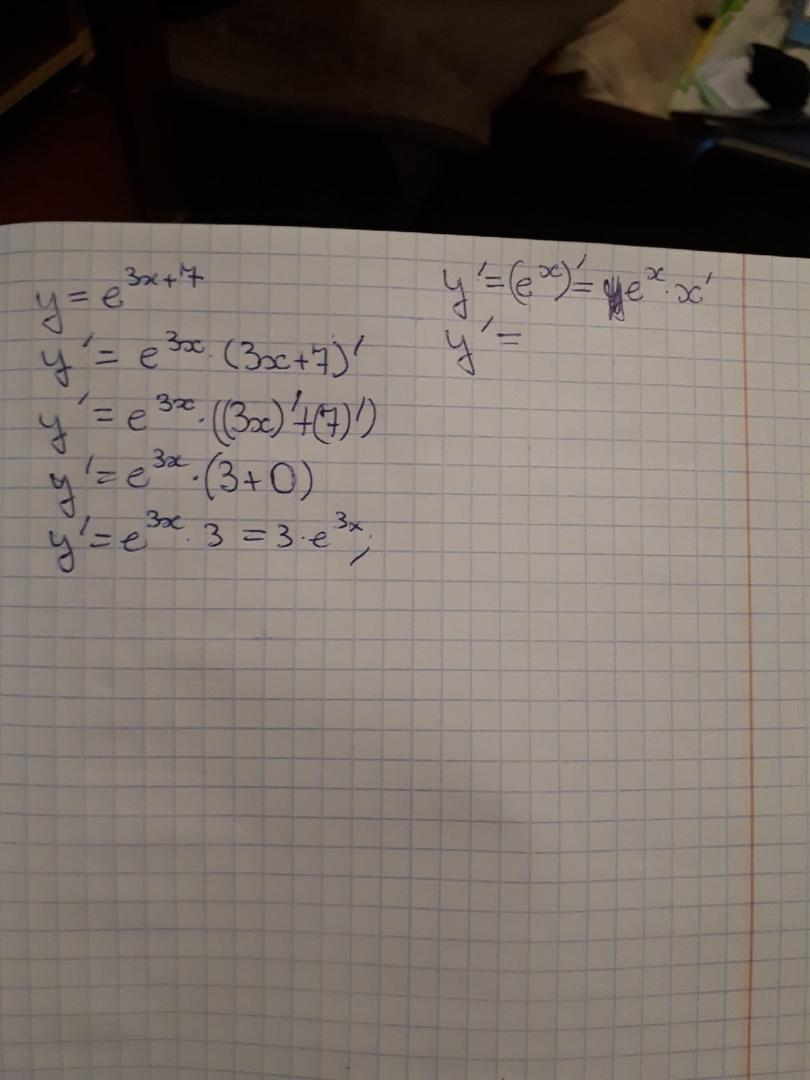 y = e^{3x+7}
y' = e^{3x} · (3x+7)'
y' = e^{3x} · ((3x)'+(7)')
y' = e^{3x} · (3+0)
y' = e^{3x} · 3 = 3 · e^{3x};
y' = (e^x)' = e^x · x'
y' =